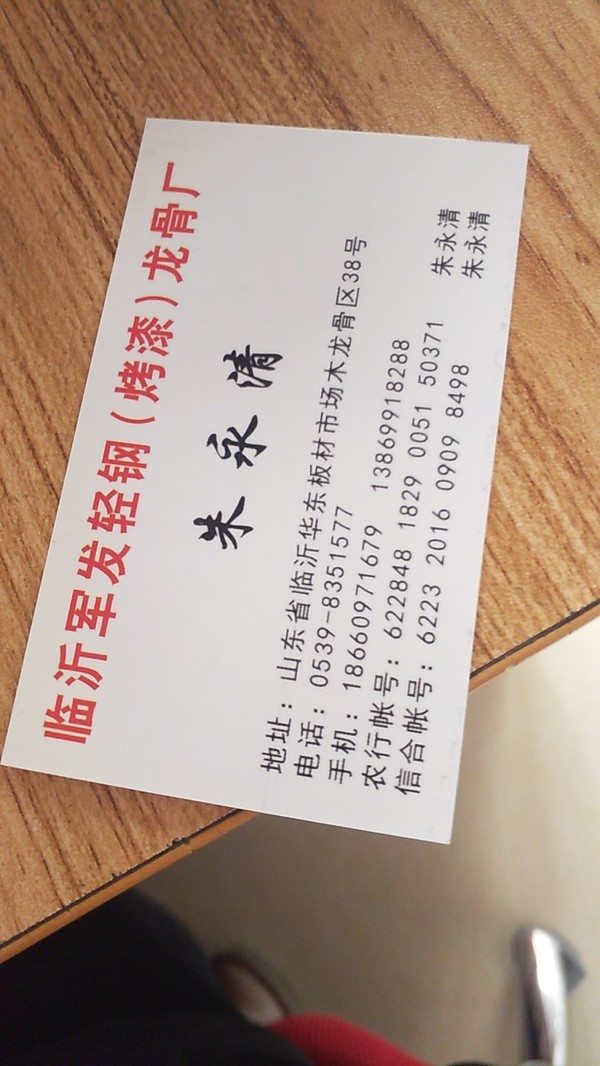 临沂军发轻钢(烤漆)龙骨厂
朱永清
地址：山东省临沂华东板材市场木龙骨区38号
电话：0539-8351577
手机：18660971679 13869918288
农行帐号：622848 1829 0051 50371 朱永清
信合帐号：6223 2016 0909 8498 朱永清